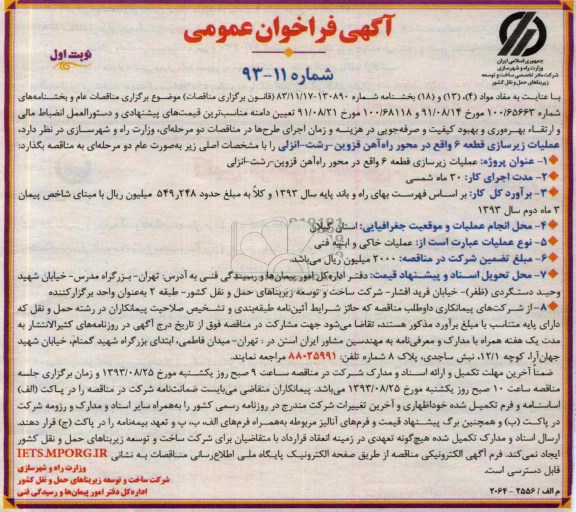 آگهی فراخوان عمومی
شماره ۱۱-۹۳
نوبت اول
جمهوری اسلامی ایران
وزارت راه و شهرسازی
شرکت مادر تخصصی ساخت و توسعه
زیربناهای حمل و نقل کشور
با عنایت به مفاد مواد (۴)، (۱۳) و (۱۸) بخشنامه شماره ۱۳۰۸۹۰-۸۳/۱۱/۱۷ (قانون برگزاری مناقصات) موضوع برگزاری مناقصات عام و بخشنامه‌های
شماره ۱۰۰/۶۵۶۶۳ مورخ ۹۱/۰۸/۱۴ و ۱۰۰/۶۸۱۱۸ مورخ ۹۱/۰۸/۲۱ تعیین دامنه مناسب‌ترین قیمت‌های پیشنهادی و دستورالعمل انضباط مالی
و ارتقاء بهره‌وری و بهبود کیفیت و صرفه‌جویی در هزینه و زمان اجرای طرح‌ها در مناقصات دو مرحله‌ای، وزارت راه و شهرسازی در نظر دارد،
عملیات زیرسازی قطعه ۶ واقع در محور راه‌آهن قزوین-رشت-انزلی را با مشخصات اصلی زیر به‌صورت عام دو مرحله‌ای به مناقصه بگذارد:
۱- عنوان پروژه: عملیات زیرسازی قطعه ۶ واقع در محور راه‌آهن قزوین-رشت-انزلی
۲- مدت اجرای کار: ۳۰ ماه شمسی
۳- برآورد کل کار: بر اساس فهرست بهای راه و باند پایه سال ۱۳۹۳ و کلاً به مبلغ حدود ۵۴۹,۲۴۸ میلیون ریال با مبنای شاخص پیمان
۳ ماه دوم سال ۱۳۹۳
۴- محل انجام عملیات و موقعیت جغرافیایی: استان گیلان
۵- نوع عملیات عبارت است از: عملیات خاکی و ابنیه فنی
۶- مبلغ تضمین شرکت در مناقصه: ۲۰۰۰ میلیون ریال می‌باشد.
۷- محل تحویل اسناد و پیشنهاد قیمت: دفتر اداره‌کل امور پیمان‌ها و رسیدگی فنی به آدرس: تهران-بزرگراه مدرس- خیابان شهید
وحید دستگردی (ظفر)- خیابان فرید افشار- شرکت ساخت و توسعه زیربناهای حمل و نقل کشور- طبقه ۲ به‌عنوان واحد برگزارکننده
۸- از شرکت‌های پیمانکاری داوطلب مناقصه که حائز شرایط آئین‌نامه طبقه‌بندی و تشخیص صلاحیت پیمانکاران در رشته حمل و نقل که
دارای پایه متناسب با مبلغ برآورد مذکور هستند، تقاضا می‌شود جهت مشارکت در مناقصه فوق از تاریخ درج آگهی در روزنامه‌های کثیرالانتشار به
مدت یک هفته همراه با مدارک و معرفی‌نامه به مهندسین مشاور ایران استن در : تهران- میدان فاطمی، ابتدای بزرگراه شهید گمنام، خیابان شهید
جهان‌آرا، کوچه ۱۲/۱، نبش ساجدی، پلاک ۸ شماره تلفن: ۸۸۰۲۵۹۹۱ مراجعه نمایند.
ضمناً آخرین مهلت تکمیل و ارائه اسناد و مدارک شرکت در مناقصه ساعت ۹ صبح روز یکشنبه مورخ ۱۳۹۳/۰۸/۲۵ و زمان برگزاری جلسه
مناقصه ساعت ۱۰ صبح روز یکشنبه مورخ ۱۳۹۳/۰۸/۲۵ می‌باشد. پیمانکاران متقاضی می‌بایست ضمانت‌نامه شرکت در مناقصه را در پاکت (الف)
اساسنامه و فرم تکمیل شده خوداظهاری و آخرین تغییرات شرکت مندرج در روزنامه رسمی کشور را به‌همراه سایر اسناد و مدارک و رزومه شرکت
در پاکت (ب) و همچنین برگ پیشنهاد قیمت و فرم‌های آنالیز مربوطه به‌همراه فرم‌های الف، ب، پ و تعهد بیمه‌نامه را در پاکت (ج) قرار دهند.
ارسال اسناد و مدارک تکمیل شده هیچ‌گونه تعهدی در زمینه انعقاد قرارداد با متقاضیان برای شرکت ساخت و توسعه زیربناهای حمل و نقل کشور
ایجاد نمی‌کند. فرم آگهی الکترونیکی مناقصه از طریق صفحه الکترونیک پایگاه ملی اطلاع‌رسانی مناقصات به نشانی IETS.MPORG.IR
قابل دسترسی است.
وزارت راه و شهرسازی
شرکت ساخت و توسعه زیربناهای حمل و نقل کشور
اداره‌کل دفتر امور پیمان‌ها و رسیدگی فنی
م الف / ۲۵۵۶ - ۲۰۶۴